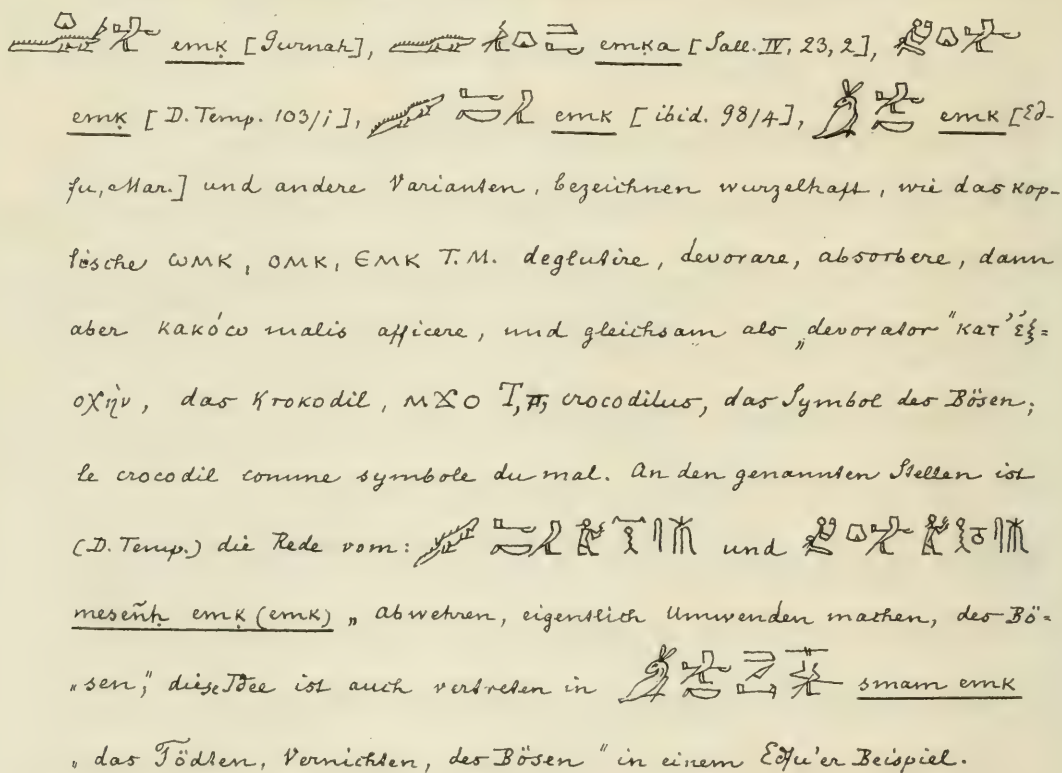 emḳ [Gurnah], emḳa [Sall. IV, 23, 2],
emḳ [D. Temp. 103/i], emk [ibid. 98/4], emk [Ed-
fu, Mar.] und andere Varianten, bezeichnen wurzelhaft, wie das kop-
tische ⲱⲙⲕ, ⲟⲙⲕ, ⲉⲙⲕ T. M. deglutire, devorare, absorbere, dann
aber κακόω malis afficere, und gleichsam als „devorator" κατ' ἐξ=
οχὴν, das Krokodil, ⲙⲥⲟ T, crocodilus, das Symbol des Bösen;
le crocodil comme symbole du mal. An den genannten Stellen ist
(D. Temp.) die Rede vom: und
meseñḥ emḳ (emk) „abwehren, eigentlich Umwenden machen, des Bö=
„sen," diese Idee ist auch vertreten in smam emk
„das Tödten, Vernichten, des Bösen" in einem Edfu'er Beispiel.